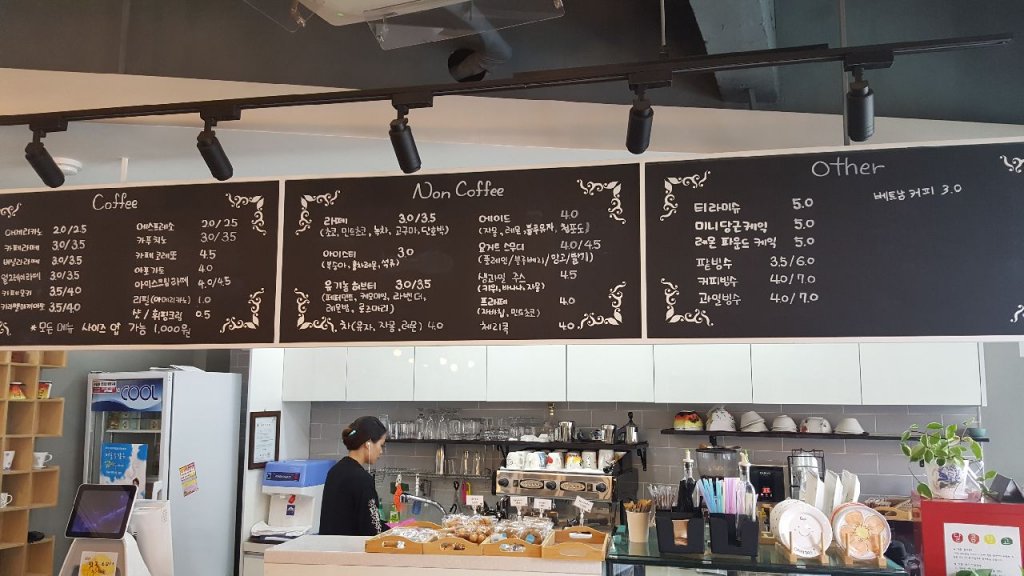 Coffee
아메리카노 2.0/2.5
카페라떼 3.0/3.5
바닐라라떼 3.0/3.5
헬그레이라떼 3.0/3.5
카페모카 3.5/4.0
카라멜마끼아또 3.5/4.0
에스프레소 2.0/2.5
카푸치노 3.0/3.5
카페 코레또 4.5
아포가토 4.0
아이스드림라떼 4.0/4.5
리필(아메리카노) 1.0
샷 / 휘핑크림 0.5
*모든 메뉴 사이즈 업 가능 1,000원
Non Coffee
라떼 3.0/3.5
(초코, 민트초코, 녹차, 고구마, 단호박)
아이스티 3.0
(복숭아, 홍차레몬, 석류)
유기농 허브티 3.0/3.5
(페퍼민트, 케모마일, 라벤더,
레몬밤, 로즈마리)
차(유자, 자몽, 레몬) 4.0
에이드 4.0
(자몽, 레몬, 블루유자, 청포도)
요거트 스무디 4.0/4.5
(플레인/블루베리/망고/딸기)
생과일 주스 4.5
(키위, 바나나, 자몽)
프라페 4.0
(자바칩, 민트초코)
체리콕 4.0
Other
티라미슈 5.0
미니 당근케익 5.0
레몬 파운드 케익 5.0
팥빙수 3.5/6.0
커피빙수 4.0/7.0
과일빙수 4.0/7.0
베트남 커피 3.0
COOL